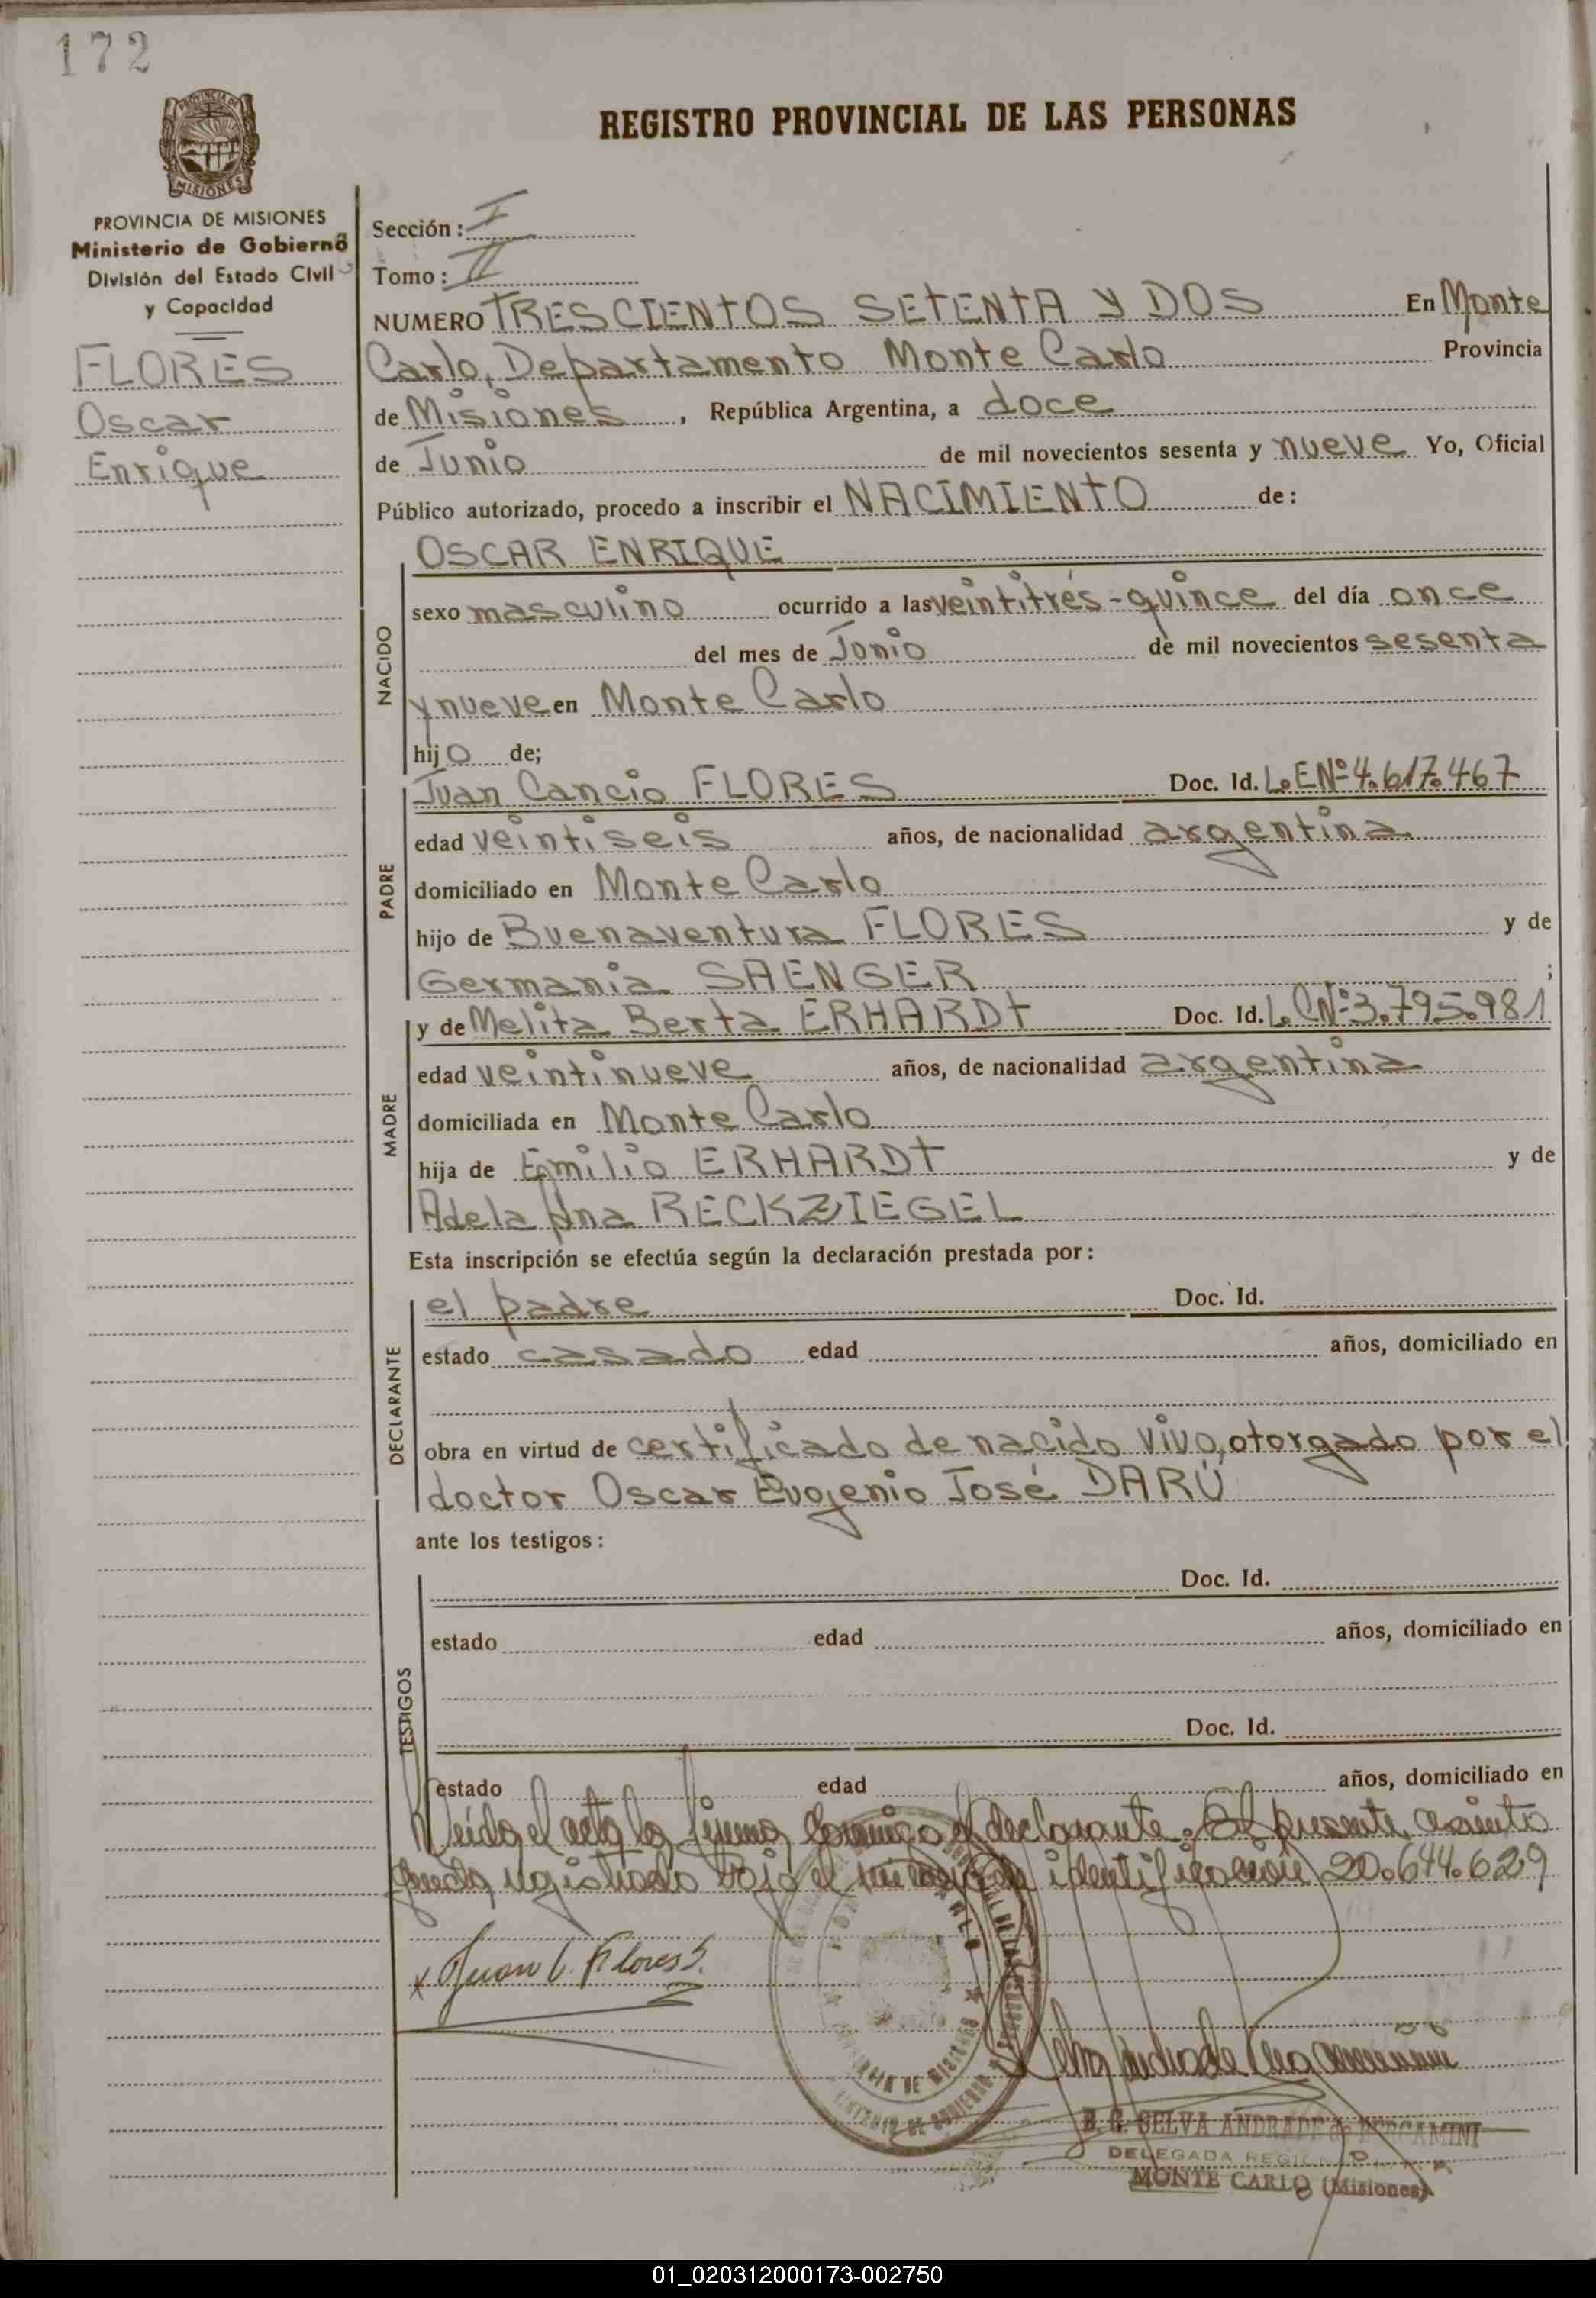 172
PROVINCIA DE
MISIONES
REGISTRO PROVINCIAL DE LAS PERSONAS
PROVINCIA DE MISIONES
Ministerio de Gobierno
División del Estado Civil
y Capacidad
FLORES
Oscar
Enrique
Sección: I
Tomo: II
NUMERO TRESCIENTOS SETENTA Y DOS En Monte
Carlo, Departamento Monte Carlo Provincia
de Misiones, República Argentina, a doce
de Junio de mil novecientos sesenta y nueve Yo, Oficial
Público autorizado, procedo a inscribir el NACIMIENTO de:
NACIDO
OSCAR ENRIQUE
sexo masculino ocurrido a las veintitrés-quince del día once
del mes de Junio de mil novecientos sesenta
y nueve en Monte Carlo
hijo de;
PADRE
Juan Cancio FLORES Doc. Id. L.E Nº 4.617.467
edad veintiseis años, de nacionalidad argentina
domiciliado en Monte Carlo
hijo de Buenaventura FLORES y de
Germania SAENGER ;
MADRE
y de Melita Berta ERHARDT Doc. Id. L.C Nº 3.795.981
edad veintinueve años, de nacionalidad argentina
domiciliada en Monte Carlo
hija de Emilio ERHARDT y de
Adela Ana RECKZIEGEL
Esta inscripción se efectúa según la declaración prestada por:
DECLARANTE
el padre Doc. Id.
estado casado edad años, domiciliado en
obra en virtud de certificado de nacido vivo, otorgado por el
doctor Oscar Eugenio José DARÚ
ante los testigos:
TESTIGOS
Doc. Id.
estado edad años, domiciliado en
Doc. Id.
estado edad años, domiciliado en
Leída el acta la firma conmigo el declarante. El presente asiento
queda registrado bajo el número de identificación 20.644.629
Juan C. Flores S.
B. G. SELVA ANDRADE de BERGAMINI
DELEGADA
MONTE CARLO (Misiones)
01_020312000173-002750